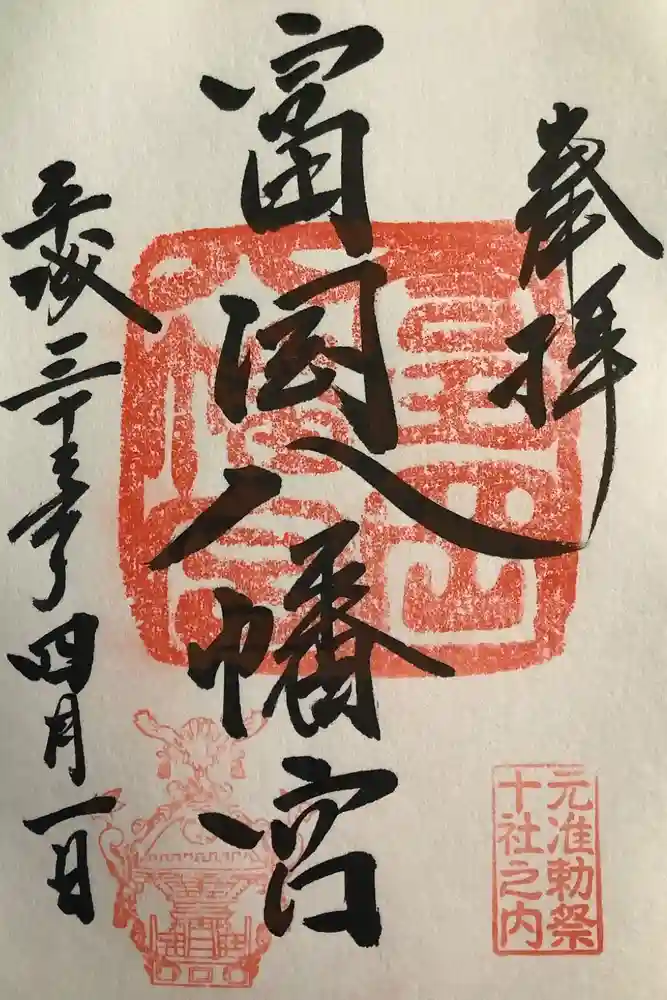 奉拝
富岡八幡宮
平成三十一年四月一日
元准勅祭
十社之内